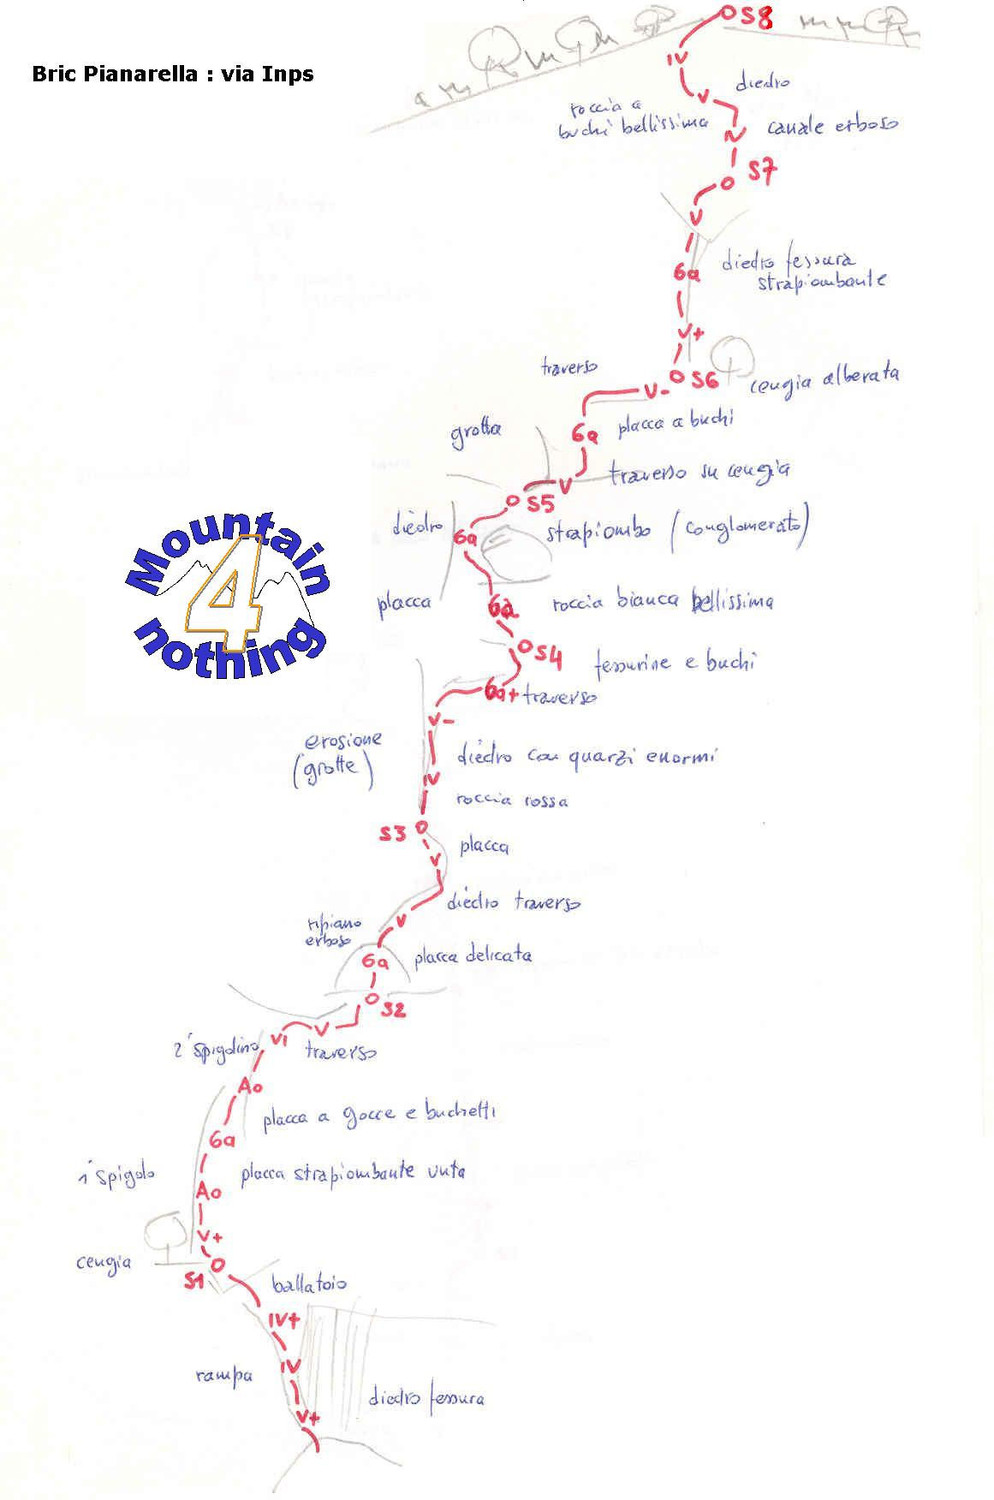 Bric Pianarella : via Inps
S8
IV
diedro
V
roccia a
buchi bellissima
canale erboso
IV
S7
V
6a
diedro fessura
strapiombante
V+
traverso
S6
V-
cengia alberata
placca a buchi
6a
grotta
traverso su cengia
V
S5
diedro
strapiombo (conglomerato)
6a
placca
6a
roccia bianca bellissima
S4
fessurine e buchi
6a+ traverso
V-
erosione
(grotte)
diedro con quarzi enormi
IV
roccia rossa
S3
placca
V
diedro traverso
V
ripiano
erboso
6a
placca delicata
S2
V
VI
2° spigolino
traverso
A0
placca a gocce e buchetti
6a
1° spigolo
placca strapiombante unta
A0
V+
cengia
S1
ballatoio
IV+
IV
rampa
diedro fessura
V+
Mountain
4
nothing